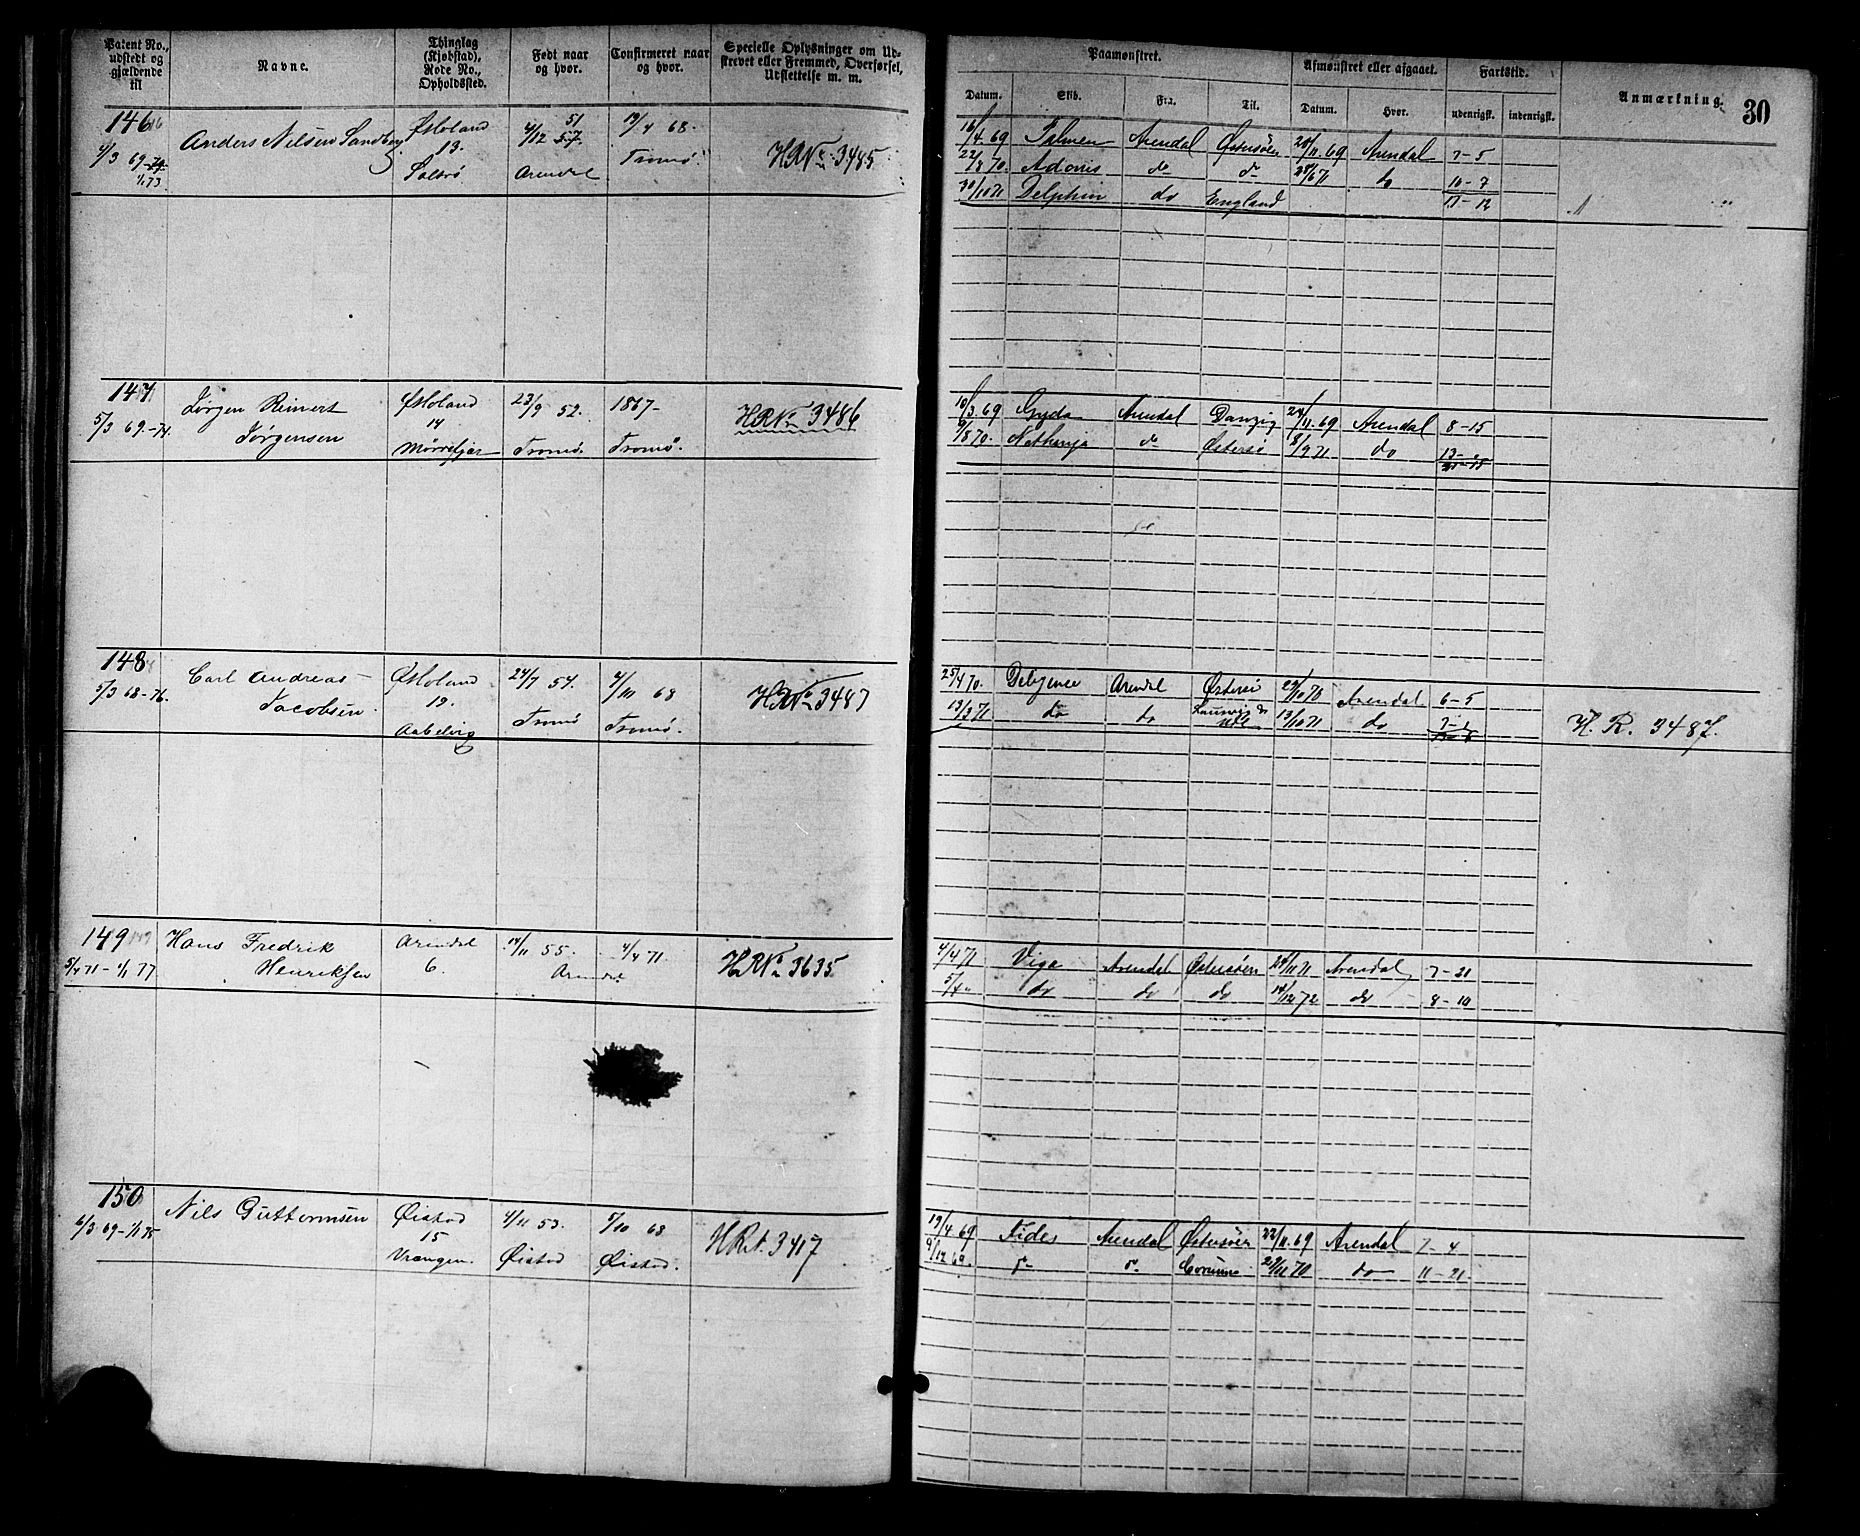 Patent No., udstedt og gjældende til
Navne.
Thinglag (Kjøbstad), Rode No., Opholdssted.
Født naar og hvor.
Confirmeret naar og hvor.
Specielle Oplysninger om Udskrevet eller Fremmed, Overførsel, Udslettelse m. m.
Paamønstret.
Afmønstret eller afgaaet.
Fartstid.
Anmærkning.
30
Datum.
Skib.
Fra.
Til.
Datum.
Hvor.
udenrigsk.
indenrigsk.
146
4/3 69-74
1/1 73
Anders Nilsen Sandberg
Østoland
13.
Saltrø
51
4/12 57.
Arendal
19/4 68.
Tromø
HR No 3485
16/4 69 Palmen Arendal Østersøen 20/11 69 Arendal 7-5
22/3 70. Adonis do do 28/6 71 do 10-7
30/10 71 Delphin do England
17-12
147
5/3 69.-74.
Jørgen Reinert
Jørgensen
Østoland
14
Mørrefjær
23/9 52.
Tromø.
1867-
Tromø.
HR No 3486
10/3 69 Gyda Arendal Danzig 24/11 69 Arendal 8-15
9/3 70. Nathanja do Østersø 8/9 71 do
148
5/3 68-76.
Carl Andreas
Jacobsen.
Østoland
19.
Aabelvig
24/7 54.
Tromø
4/10 68
Tromø.
HR No 3487
25/4 70. Deligence Arendal Østersø 29/10 70 Arendal 6-5
13/3 71 do do 13/10 71 do
H. R. 3487.
149
5/4 71-1/1 77
Hans Fredrik
Henriksen
Arendal
6.
14/11 55.
Arendal
4/4 71.
HR No 3635
4/4 71 Viga Arendal Østersøen 24/11 71 Arendal 7-21
5/4 do do do 14/12 72 do 8-10
150
6/3 69-1/1 75
Nils Guttormsen
Øistad
15
Vrængen.
4/11 53.
Øistad
5/10 68
Øistad.
HR No. 3417
19/4 69 Fides Arendal Østersøen 22/11 69 Arendal 7-4
4/12 69. do do 29/11 70 do 11-21